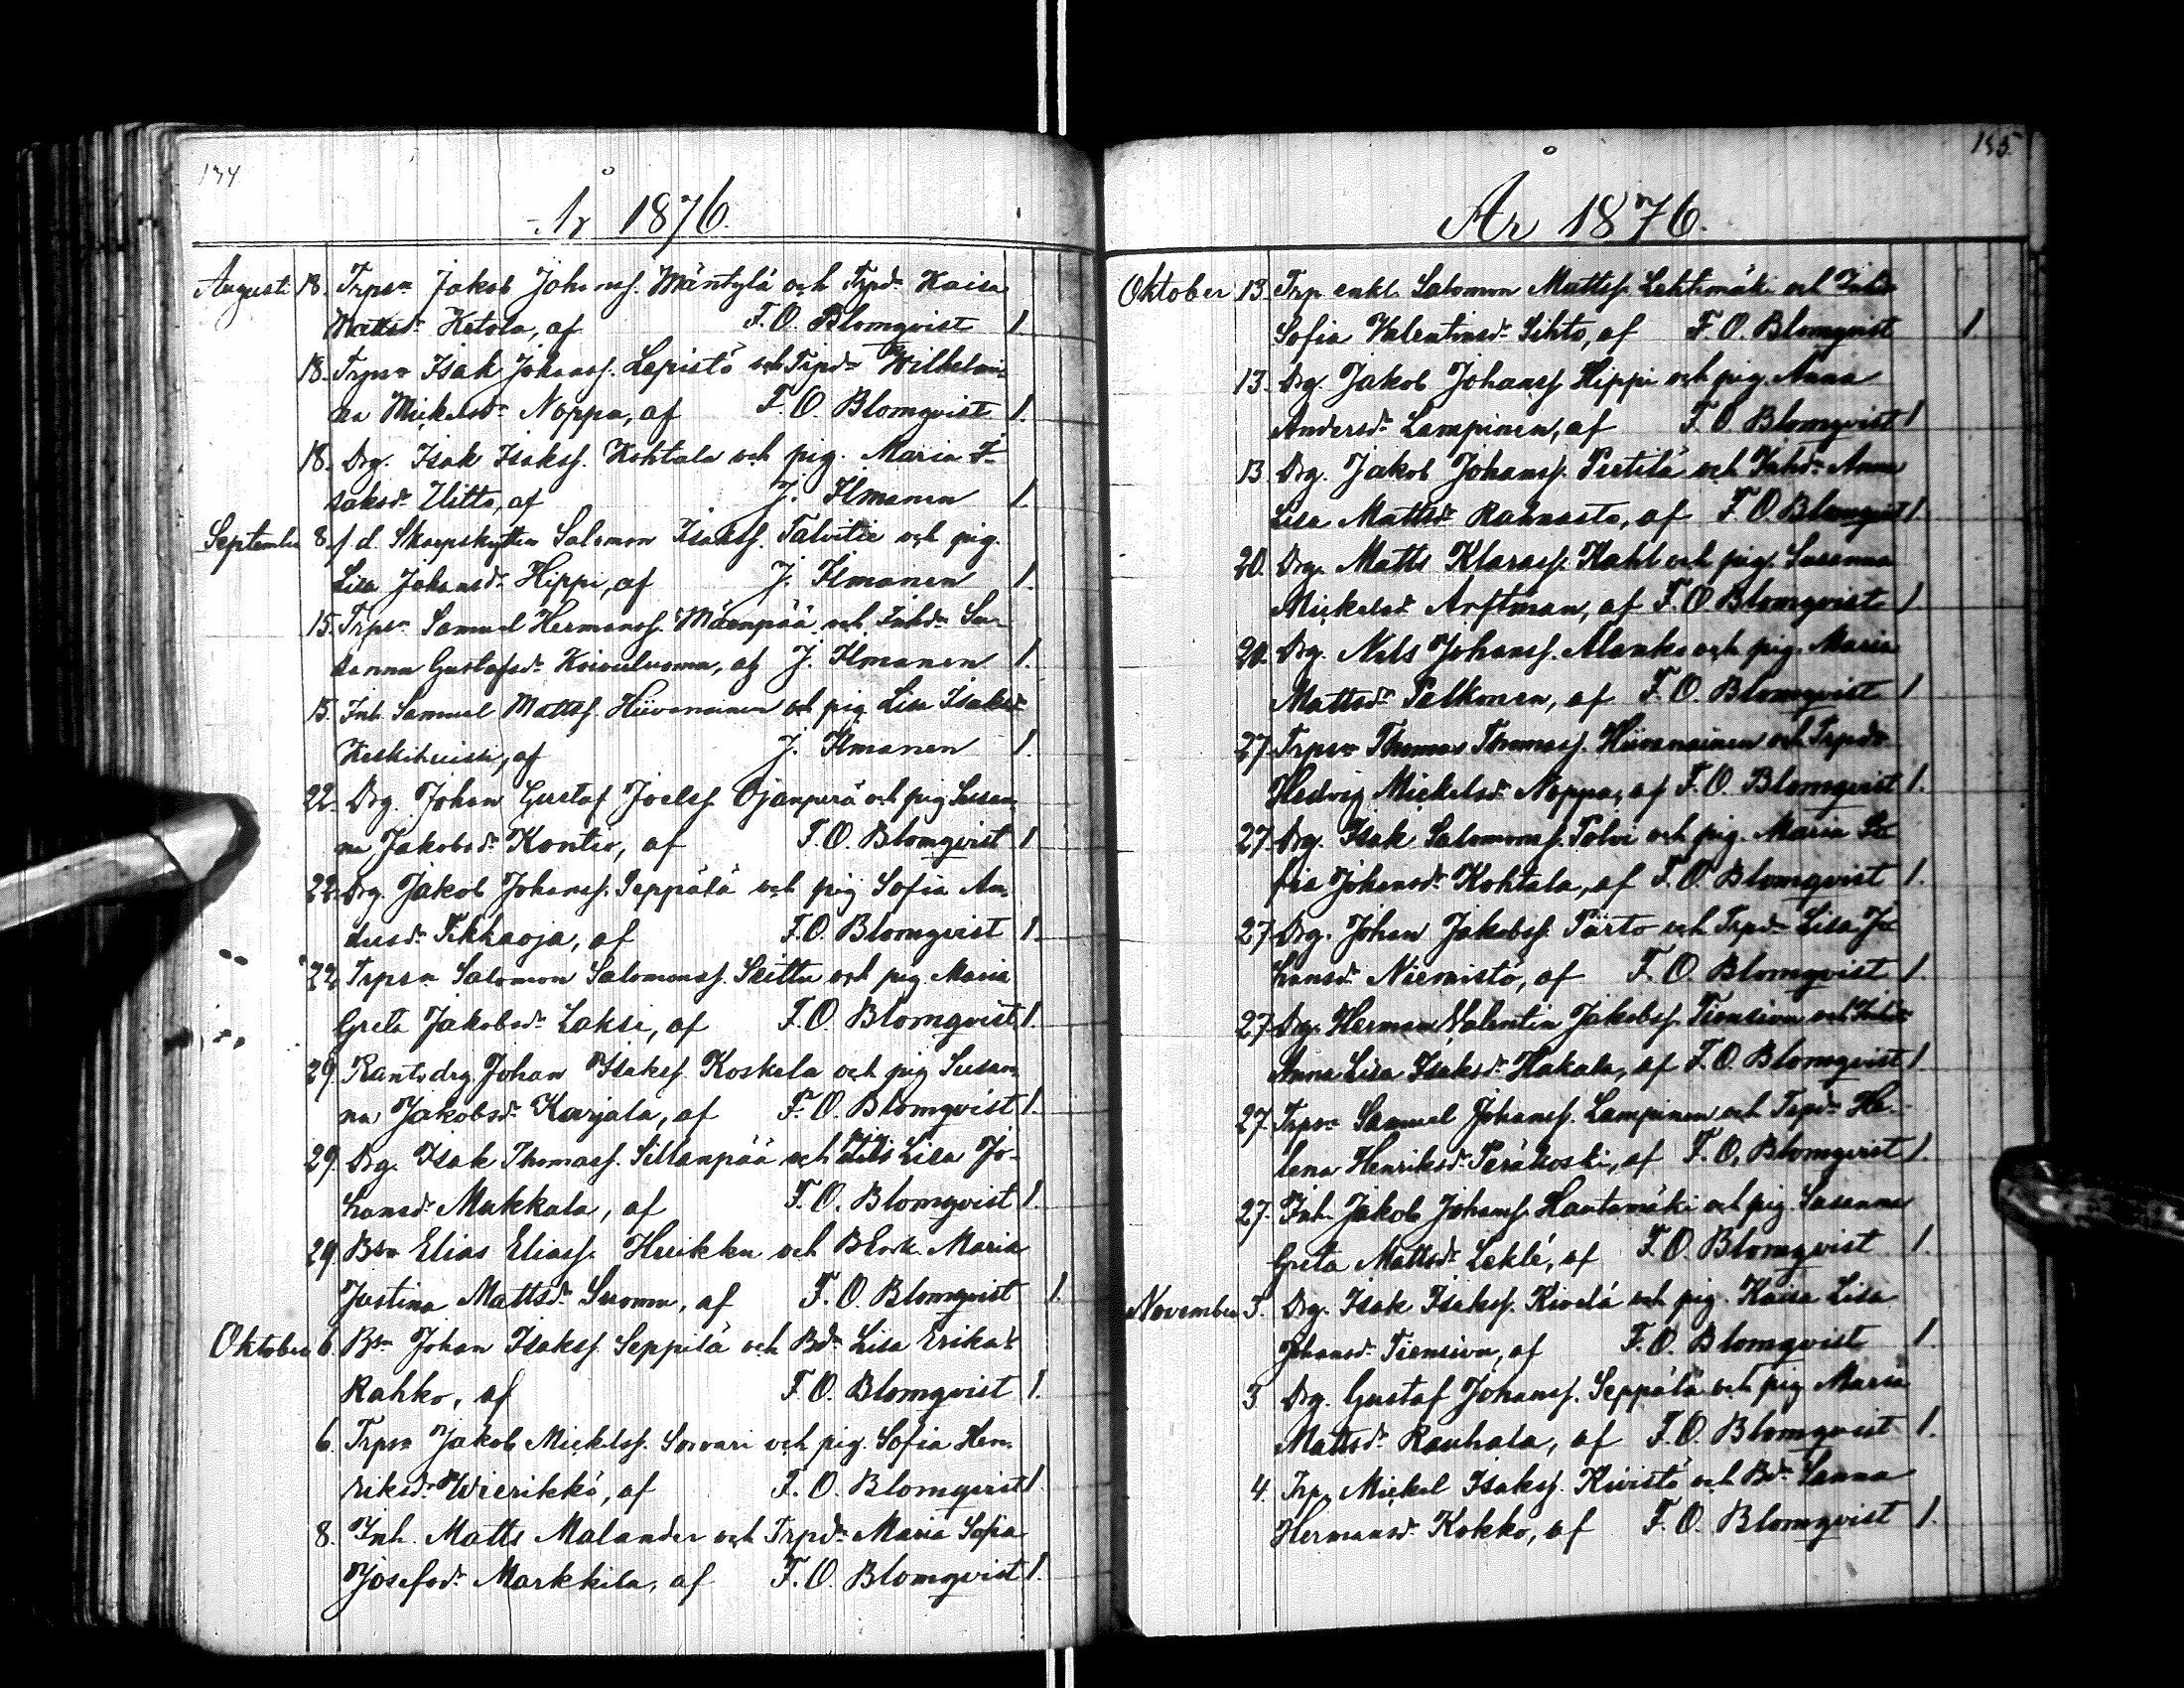 144
År 1876.
Augusti 18. Trpsn Jakob Johanss. Mäntylä och Trpdr Kaisa
Mattsdr Ketola, af F. O. Blomqvist 1.
18. Trpsn Isak Johanss. Lepistö och Trpdr Wilhelmi-
na Mickelsdr Noppa, af F. O. Blomqvist 1.
18. Drg. Isak Isakss. Kohtala och pig. Maria I-
saksdr Uitto, af J. Ilmanen 1.
September 8. f. d. Skarpskytten Salomon Isakss. Talvitie och pig.
Lisa Johansdr Hippi, af J. Ilmanen 1.
15. Trpsn Samuel Hermanss. Mäenpää och Inhdr Su-
sanna Gustafsdr Koivuluoma, af J. Ilmanen 1.
15. Inh. Samuel Mattss. Hiivanainen och pig Lisa Isaksdr
af J. Ilmanen 1.
22. Drg. Johan Gustaf Joelss. Ojanperä och pig Susan-
na Jakobsdr Kontio, af F. O. Blomqvist 1
22. Drg. Jakob Johanss. Seppälä och pig Sofia An-
dersdr Tikkaoja, af F. O. Blomqvist 1.
22 Trpsn Salomon Salomonss. Sleittu och pig. Maria
Greta Jakobsdr Laksi, af F. O. Blomqvist 1.
29. Rantsdrg. Johan Isakss. Koskela och pig Susan-
na Jakobsdr Karjala, af F. O. Blomqvist 1.
29. Drg. Isak Thomass. Sillanpää och pig Lisa Jo-
hansdr Mukkala, af F. O. Blomqvist 1.
29. Bsn Elias Eliass. Heikku och B.Enk. Maria
Justina Mattsdr Suomu, af F. O. Blomqvist 1.
Oktober 6. Bsn Johan Isakss. Seppilä och Bdr Lisa Eriksdr
Rahko, af F. O. Blomqvist 1.
6. Trpsn Jakob Mickelss. Sorvari och pig. Sofia Hen-
riksdr Wierikkö, af F. O. Blomqvist 1.
8. Inh. Matts Malander och Trpdr Maria Sofia
Josefsdr Markkila, af F. O. Blomqvist 1.
145.
År 1876.
Oktober 13. Trp enkl. Salomon Mattss. Lehtimäki och Inhdr
Sofia Valentinsdr Sihto, af F. O. Blomqvist 1.
13. Drg. Jakob Johanss. Hippi och pig. Anna
Andersdr Lampinen, af F. O. Blomqvist 1
13 Drg. Jakob Johanss. Pertilä och Inhdr Anna
Lisa Mattsdr Rahnasto, af F. O. Blomqvist 1.
20. Drg. Matts Klarass. Kahl och pig. Susanna
Mickelsdr Arftman, af F. O. Blomqvist 1
20. Drg. Nils Johanss. Alanko och pig. Maria
Mattsdr Palkonen, af F. O. Blomqvist 1
27. Trpsn Thomas Thomass. Hiivanainen och Trpdr
Hedvig Mickelsdr Noppa, af F. O. Blomqvist 1.
27. Drg. Isak Salomonss. Polvi och pig. Maria So-
fia Johansdr Kohtala, af F. O. Blomqvist 1.
27. Drg. Johan Jakobss. Pärto och Trpdr Lisa Jo-
hansdr Niemistö, af F. O. Blomqvist 1.
27. Drg. Herman Valentin Jakobss. Tiensivu och Inhdr
Anna Lisa Isaksdr Hakala, af F. O. Blomqvist 1.
27. Trpsn Samuel Johanss. Lampinen och Trpdr He-
lena Henriksdr Peräkoski, af F. O. Blomqvist 1.
27. Inh. Jakob Johanss. Hautamäki och pig. Susanna
Greta Mattsdr Leklé, af F. O. Blomqvist 1.
November 3. Drg. Isak Isakss. Kivelä och pig. Kaisa Lisa
Johansdr Tiensivu, af F. O. Blomqvist 1.
3 Drg. Gustaf Johanss. Seppälä och pig Maria
Mattsdr Rauhala, af F. O. Blomqvist 1.
4. Trp. Mickel Isakss. Kivistö och Bdr Sanna
Hermansdr Kokko, af F. O. Blomqvist 1.